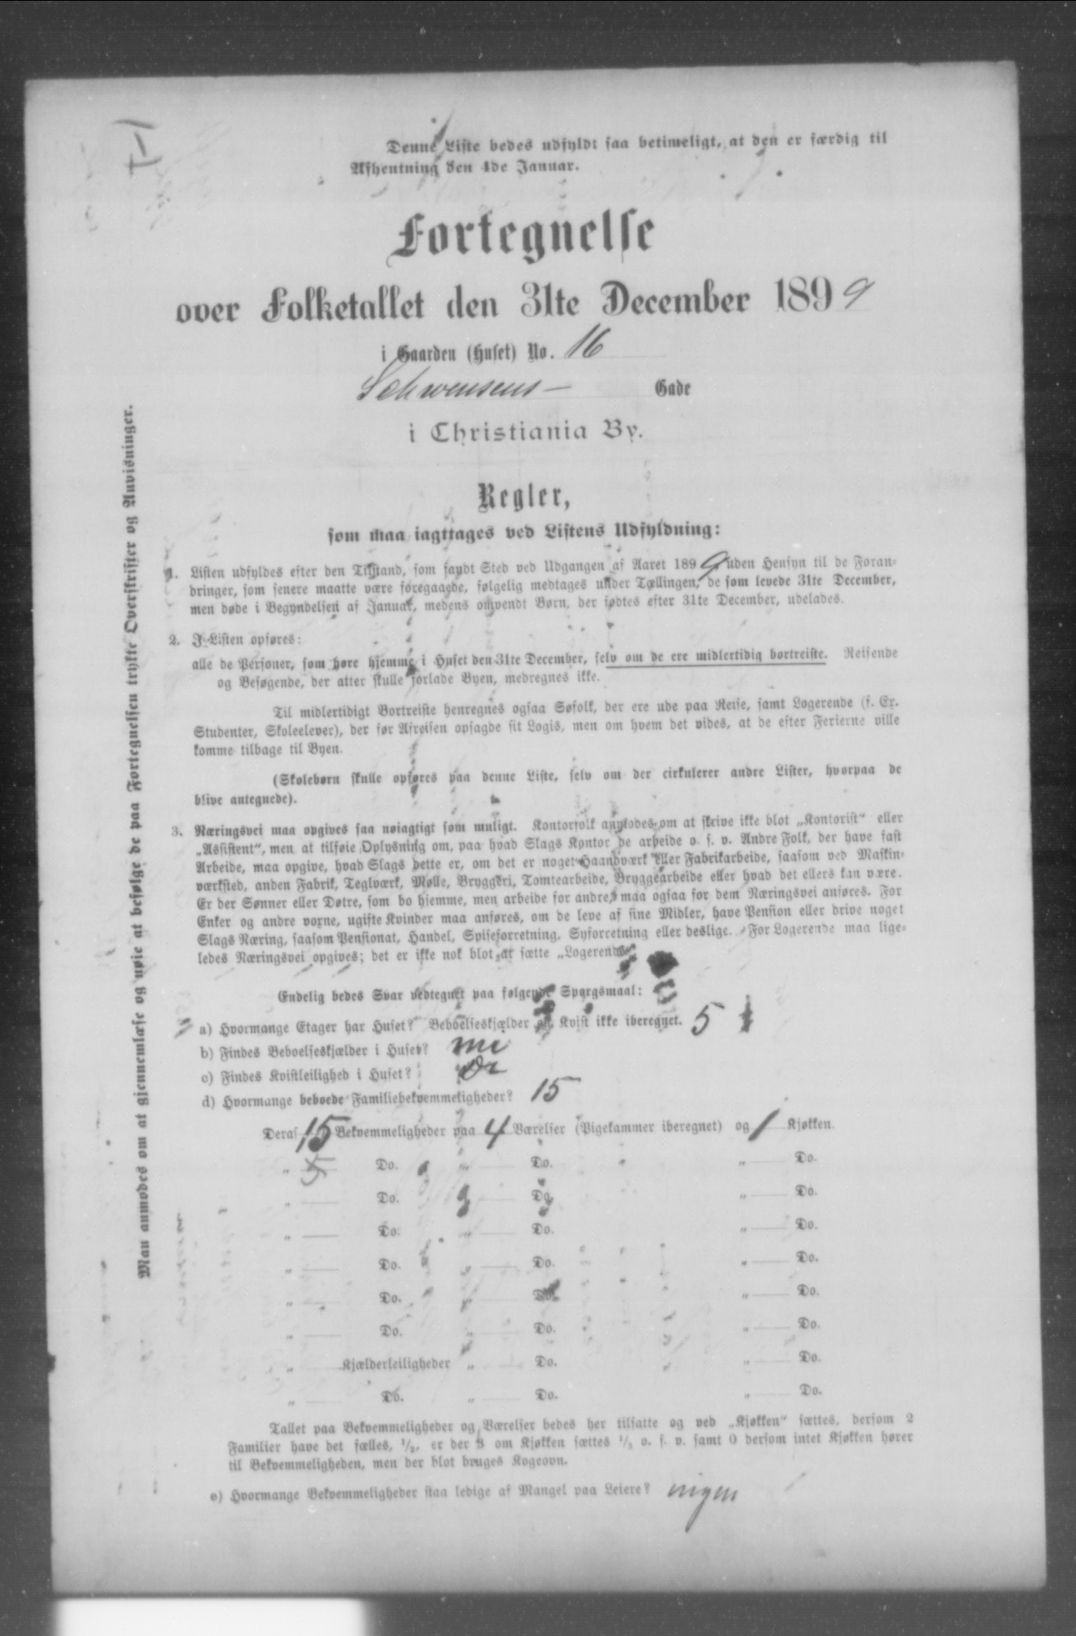 Denne Liste bedes udfyldt saa betimeligt, at den er færdig til
Afhentning den 4de Januar.
Fortegnelse
over Folketallet den 31te December 1899
i Gaarden (Huset) No. 16
Schwensens- Gade
i Christiania By.
Regler,
som maa iagttages ved Listens Udfyldning:
1. Listen udfyldes efter den Tilstand, som fandt Sted ved Udgangen af Aaret 1899 uden Hensyn til de Foran-
dringer, som senere maatte være foregaaede, følgelig medtages under Tællingen, de som levede 31te December,
men døde i Begyndelsen af Januar, medens omvendt Børn, der fødtes efter 31te December, udelades.
2. I Listen opføres:
alle de Personer, som høre hjemme i Huset den 31te December, selv om de ere midlertidig bortreiste. Reisende
og Besøgende, der atter skulle forlade Byen, medregnes ikke.
Til midlertidigt Bortreiste henregnes ogsaa Søfolk, der ere ude paa Reise, samt Logerende (f. Ex.
Studenter, Skoleelever), der før Afreisen opsagde sit Logis, men om hvem det vides, at de efter Ferierne ville
komme tilbage til Byen.
(Skolebørn skulle opføres paa denne Liste, selv om der cirkulerer andre Lister, hvorpaa de
blive antegnede).
3. Næringsvei maa opgives saa nøiagtigt som muligt. Kontorfolk anmodes om at skrive ikke blot „Kontorist“ eller
„Assistent“, men at tilføie Oplysning om, paa hvad Slags Kontor de arbeide o. s. v. Andre Folk, der have fast
Arbeide, maa opgive, hvad Slags dette er, om det er noget Haandværk eller Fabrikarbeide, saasom ved Maskin-
værksted, anden Fabrik, Teglværk, Mølle, Bryggeri, Tomtearbeide, Bryggearbeide eller hvad det ellers kan være.
Er der Sønner eller Døtre, som bo hjemme, men arbeide for andre, maa ogsaa for dem Næringsvei anføres. For
Enker og andre voxne, ugifte Kvinder maa anføres, om de leve af sine Midler, have Pension eller drive noget
Slags Næring, saasom Pensionat, Handel, Spiseforretning, Syforretning eller deslige. For Logerende maa lige-
ledes Næringsvei opgives; det er ikke nok blot at sætte „Logerende“.
Endelig bedes Svar vedtegnet paa følgende Spørgsmaal:
a) Hvormange Etager har Huset? Beboelseskjælder og Kvist ikke iberegnet. 5
b) Findes Beboelseskjælder i Huset?
c) Findes Kvistleilighed i Huset?
d) Hvormange beboede Familiebekvemmeligheder? 15
Deraf 15 Bekvemmeligheder paa 4 Værelser (Pigekammer iberegnet) og 1 Kjøkken.
„ Do. „ Do. „ Do.
„ Do. „ Do. „ Do.
„ Do. „ Do. „ Do.
„ Do. „ Do. „ Do.
„ Do. „ Do. „ Do.
„ Do. „ Do. „ Do.
„ Kjælderleiligheder „ Do. „ Do.
„ Do. „ Do. „ Do.
Tallet paa Bekvemmeligheder og Værelser bedes her tilsatte og ved „Kjøkken“ sættes, dersom 2
Familier have det fælles, 1/2, er der 3 om Kjøkken sættes 1/3 o. s. v. samt 0 dersom intet Kjøkken hører
til Bekvemmeligheden, men der blot bruges Kogeovn.
e) Hvormange Bekvemmeligheder staa ledige af Mangel paa Leiere? ingen
Man anmodes om at gjennemlæse og nøie at befølge de paa Fortegnelsen trykte Overskrifter og Anvisninger.